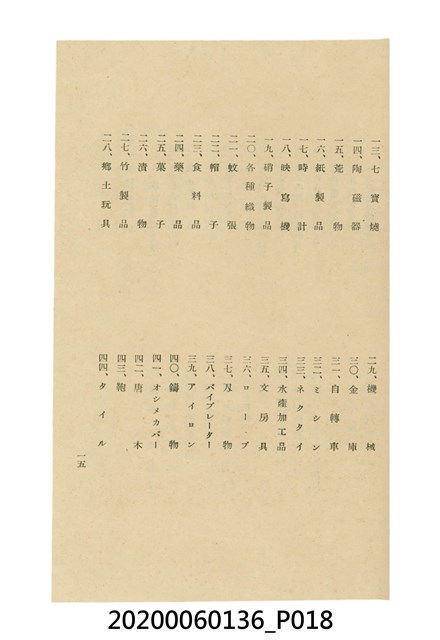 一三、七寶燒
一四、陶磁器
一五、荒物
一六、紙製品
一七、時計
一八、映寫機
一九、硝子製品
二〇、各種織物
二一、蚊張
二二、帽子
二三、食料品
二四、藥品
二五、菓子
二六、漬物
二七、竹製品
二八、鄕土玩具
二九、機械
三〇、金庫
三一、自轉車
三二、ミシン
三三、ネクタイ
三四、水產加工品
三五、文房具
三六、ロープ
三七、刄物
三八、バイブレーター
三九、アイロン
四〇、鑄物
四一、オシメカバー
四二、唐木
四三、鞄
四四、タイル
一五
20200060136_P018